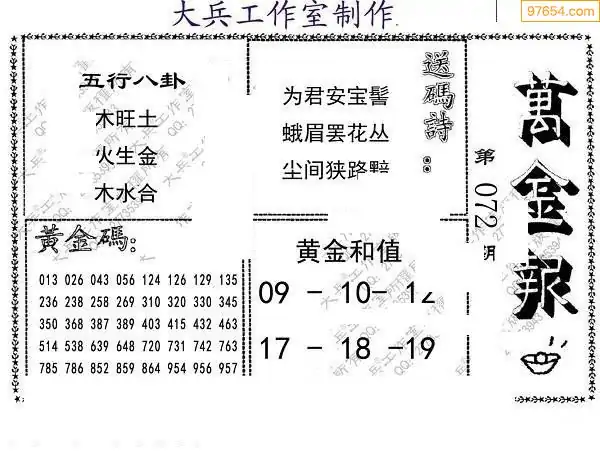 大兵工作室制作
97654.com
萬金報
第072期
送碼詩:
为君安宝髻
蛾眉罢花丛
尘间狭路黯
五行八卦
木旺土
火生金
木水合
黄金碼:
013 026 043 056 124 126 129 135
236 238 258 269 310 320 330 345
350 368 387 389 403 415 432 463
514 538 639 648 720 731 742 763
785 786 852 859 864 954 956 957
黄金和值
09 - 10- 12
17 - 18 -19